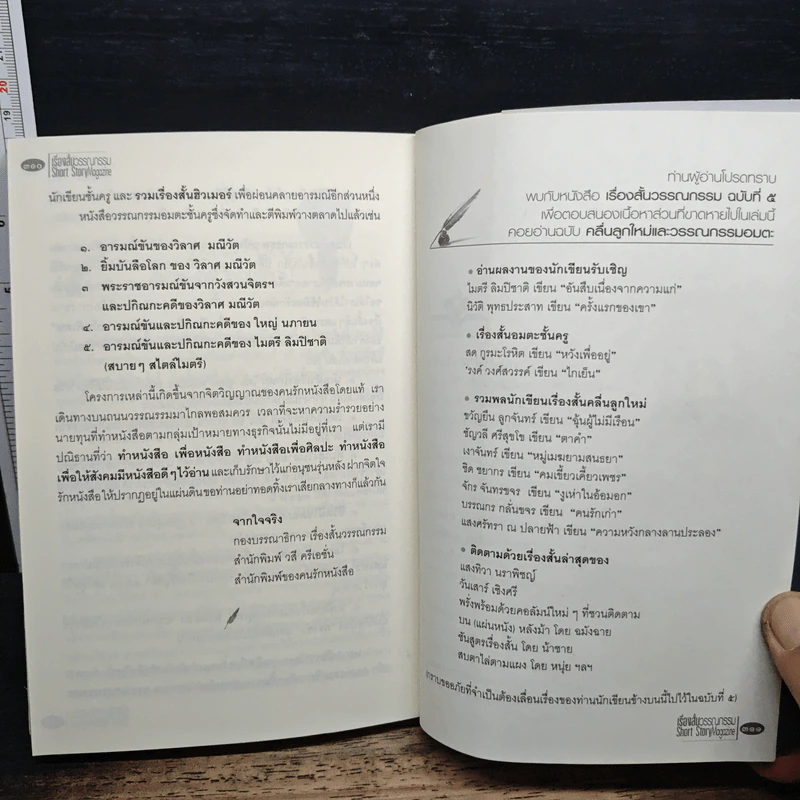 ๒๑๐
เรื่องสั้นวรรณกรรม
Short Story Magazine
นักเขียนชั้นครู และ รวมเรื่องสั้นฮิวเมอร์ เพื่อผ่อนคลายอารมณ์อีกส่วนหนึ่ง
หนังสือวรรณกรรมอมตะชั้นครูซึ่งจัดทำและตีพิมพ์วางตลาดไปแล้วเช่น
๑. อารมณ์ขันของวิลาศ มณีวัต
๒. ยิ้มบันลือโลก ของ วิลาศ มณีวัต
๓ พระราชอารมณ์ขันจากวังสวนจิตรฯ
และปกิณกะคดีของวิลาศ มณีวัต
๔. อารมณ์ขันและปกิณกะคดีของ ใหญ่ นภายน
๕. อารมณ์ขันและปกิณกะคดีของ ไมตรี ลิมปิชาติ
(สบายๆ สไตล์ไมตรี)
โครงการเหล่านี้เกิดขึ้นจากจิตวิญญาณของคนรักหนังสือโดยแท้ เรา
เดินทางบนถนนวรรณกรรมมาไกลพอสมควร เวลาที่จะหาความร่ำรวยอย่าง
นายทุนที่ทำหนังสือตามกลุ่มเป้าหมายทางธุรกิจนั้นไม่มีอยู่ที่เรา แต่เรามี
ปณิธานที่ว่า ทำหนังสือ เพื่อหนังสือ ทำหนังสือเพื่อศิลปะ ทำหนังสือ
เพื่อให้สังคมมีหนังสือดีๆไว้อ่าน และเก็บรักษาไว้แก่อนุชนรุ่นหลัง ฝากจิตใจ
รักหนังสือให้ปรากฏอยู่ในแผ่นดิน ขอท่านอย่าทอดทิ้งเราเสียกลางทางก็แล้วกัน
จากใจจริง
กองบรรณาธิการ เรื่องสั้นวรรณกรรม
สำนักพิมพ์ วสี ครีเอชั่น
สำนักพิมพ์ของคนรักหนังสือ
ท่านผู้อ่านโปรดทราบ
พบกับหนังสือ เรื่องสั้นวรรณกรรม ฉบับที่ ๕
เพื่อตอบสนองเนื้อหาส่วนที่ขาดหายไปในเล่มนี้
คอยอ่านฉบับ คลื่นลูกใหม่และวรรณกรรมอมตะ
• อ่านผลงานของนักเขียนรับเชิญ
ไมตรี ลิมปิชาติ เขียน “อันสืบเนื่องจากความแก่”
นิวัติ พุทธประสาท เขียน “ครั้งแรกของเขา”
• เรื่องสั้นอมตะชั้นครู
สด กูรมะโรหิต เขียน “หวังเพื่ออยู่”
'รงค์ วงศ์สวรรค์ เขียน “ไกเย็น”
• รวมพลนักเขียนเรื่องสั้นคลื่นลูกใหม่
ขวัญยืน ลูกจันทร์ เขียน “ฉู้นผู้ไม่มีเรือน”
ชัญวลี ศรีสุขโข เขียน “ตาคำ”
เงาจันทร์ เขียน “หมู่เมฆยามสนธยา”
ชิด ชยากร เขียน “คมเขี้ยวเคี้ยวเพชร”
จักร จันทรขจร เขียน “งูเห่าในอ้อมอก”
บรรณกร กลั่นขจร เขียน “คนรักเก่า”
แสงศรัทรา ณ ปลายฟ้า เขียน “ความหวังกลางลานประลอง”
• ติดตามด้วยเรื่องสั้นล่าสุดของ
แสงทิวา นราพิชญ์
วันเสาร์ เชิงศรี
พรั่งพร้อมด้วยคอลัมน์ใหม่ ๆ ที่ชวนติดตาม
บน (แผ่นหนัง) หลังม้า โดย ฉมังฉาย
ชันสูตรเรื่องสั้น โดย น้าชาย
สบตาไล่ตามแผง โดย หนุ่ย ฯลฯ
กราบขออภัยที่จำเป็นต้องเลื่อนเรื่องของท่านนักเขียนข้างบนนี้ไปไว้ในฉบับที่ ๕)
เรื่องสั้นวรรณกรรม
Short Story Magazine
๒๑๑